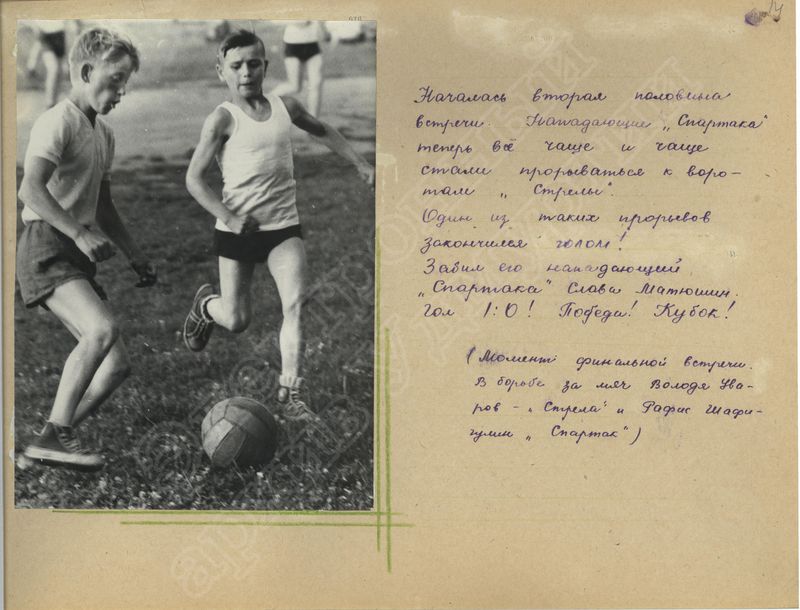 14
Началась вторая половина
встречи. Нападающие „Спартака"
теперь всё чаще и чаще
стали прорываться к воро-
там „Стрелы".
Один из таких прорывов
закончился голом!
Забил его нападающий
„Спартака" Слава Матюшин.
Гол 1:0! Победа! Кубок!
(Момент финальной встречи.
В борьбе за мяч Володя Ува-
ров - „Стрела" и Рафис Шафи-
гулин „Спартак")